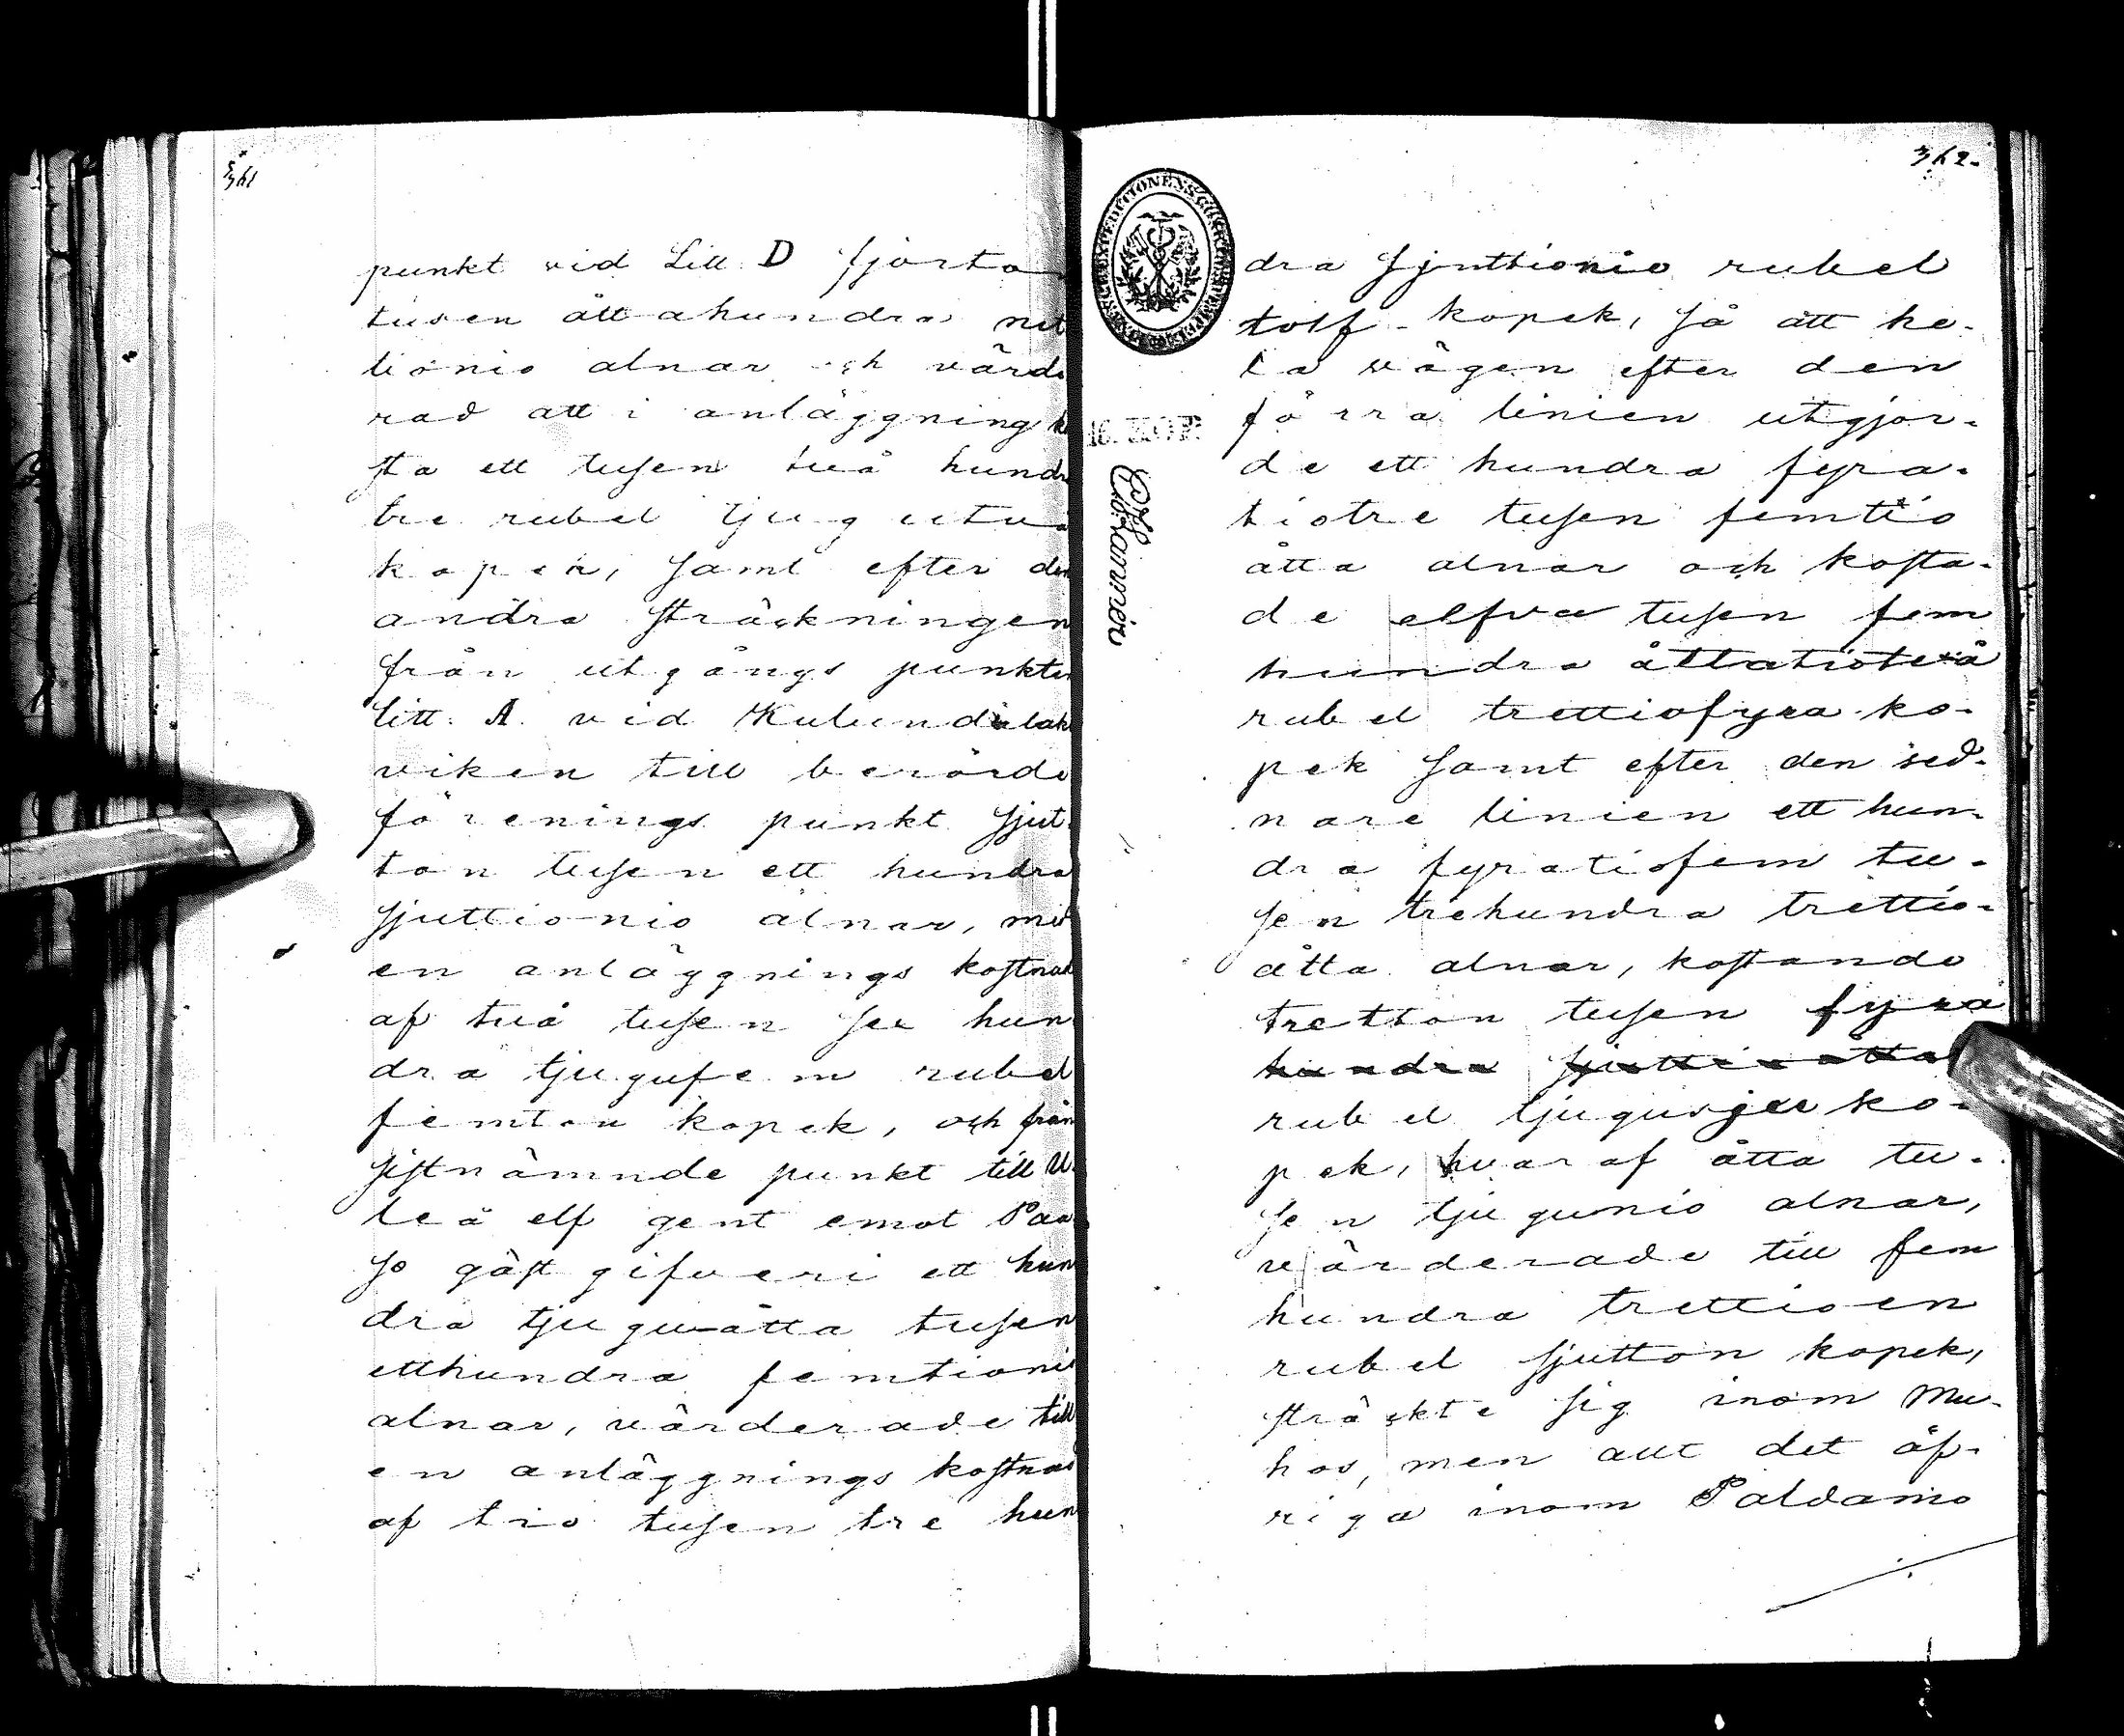 361
punkt vid Litt D fjorto
tusen åttahundra nit
tionio alnar och värde
rad att i anläggning ko
sta ett tusen två hundra
tre rubel tjugutvå
kopek, samt efter den
andra sträckningen
från utgångs punkten
Litt. A. vid
viken till berörde
förenings punkt sjut
ton tusen ett hundra
sjuttionio alnar, med
en anläggnings kostnad
af två tusen sex hun
dra tjugufem rubel
femton kopek, och från
sistnämnde punkt till U
leå elf gent emot Paa
so gästgifveri ett hun
dra tjuguåtta tusen
etthundra femtionio
alnar, värderade till
en anläggnings kostnad
af tio tusen tre hun
362.
dra sjuttionio rubel
tolf kopek, så att he-
la vägen efter den
förra linien utgjor-
de ett hundra fyra-
tiotre tusen femtio
åtta alnar och kosta-
de elfva tusen fem
hundra åttatiotvå
rubel trettiofyra ko-
pek samt efter den sed-
nare linien ett hun-
dra fyratiofem tu-
sen trehundra trettio-
åtta alnar, kostande
tretton tusen fyra
hundra sjuttioåtta
rubel tjugusju ko-
pek, hvaraf åtta tu-
sen tjugunio alnar,
värderade till fem
hundra trettioen
rubel sjutton kopek,
sträckte sig inom Mu-
hos, men allt det öf-
riga inom Paldamo
16. KOP.